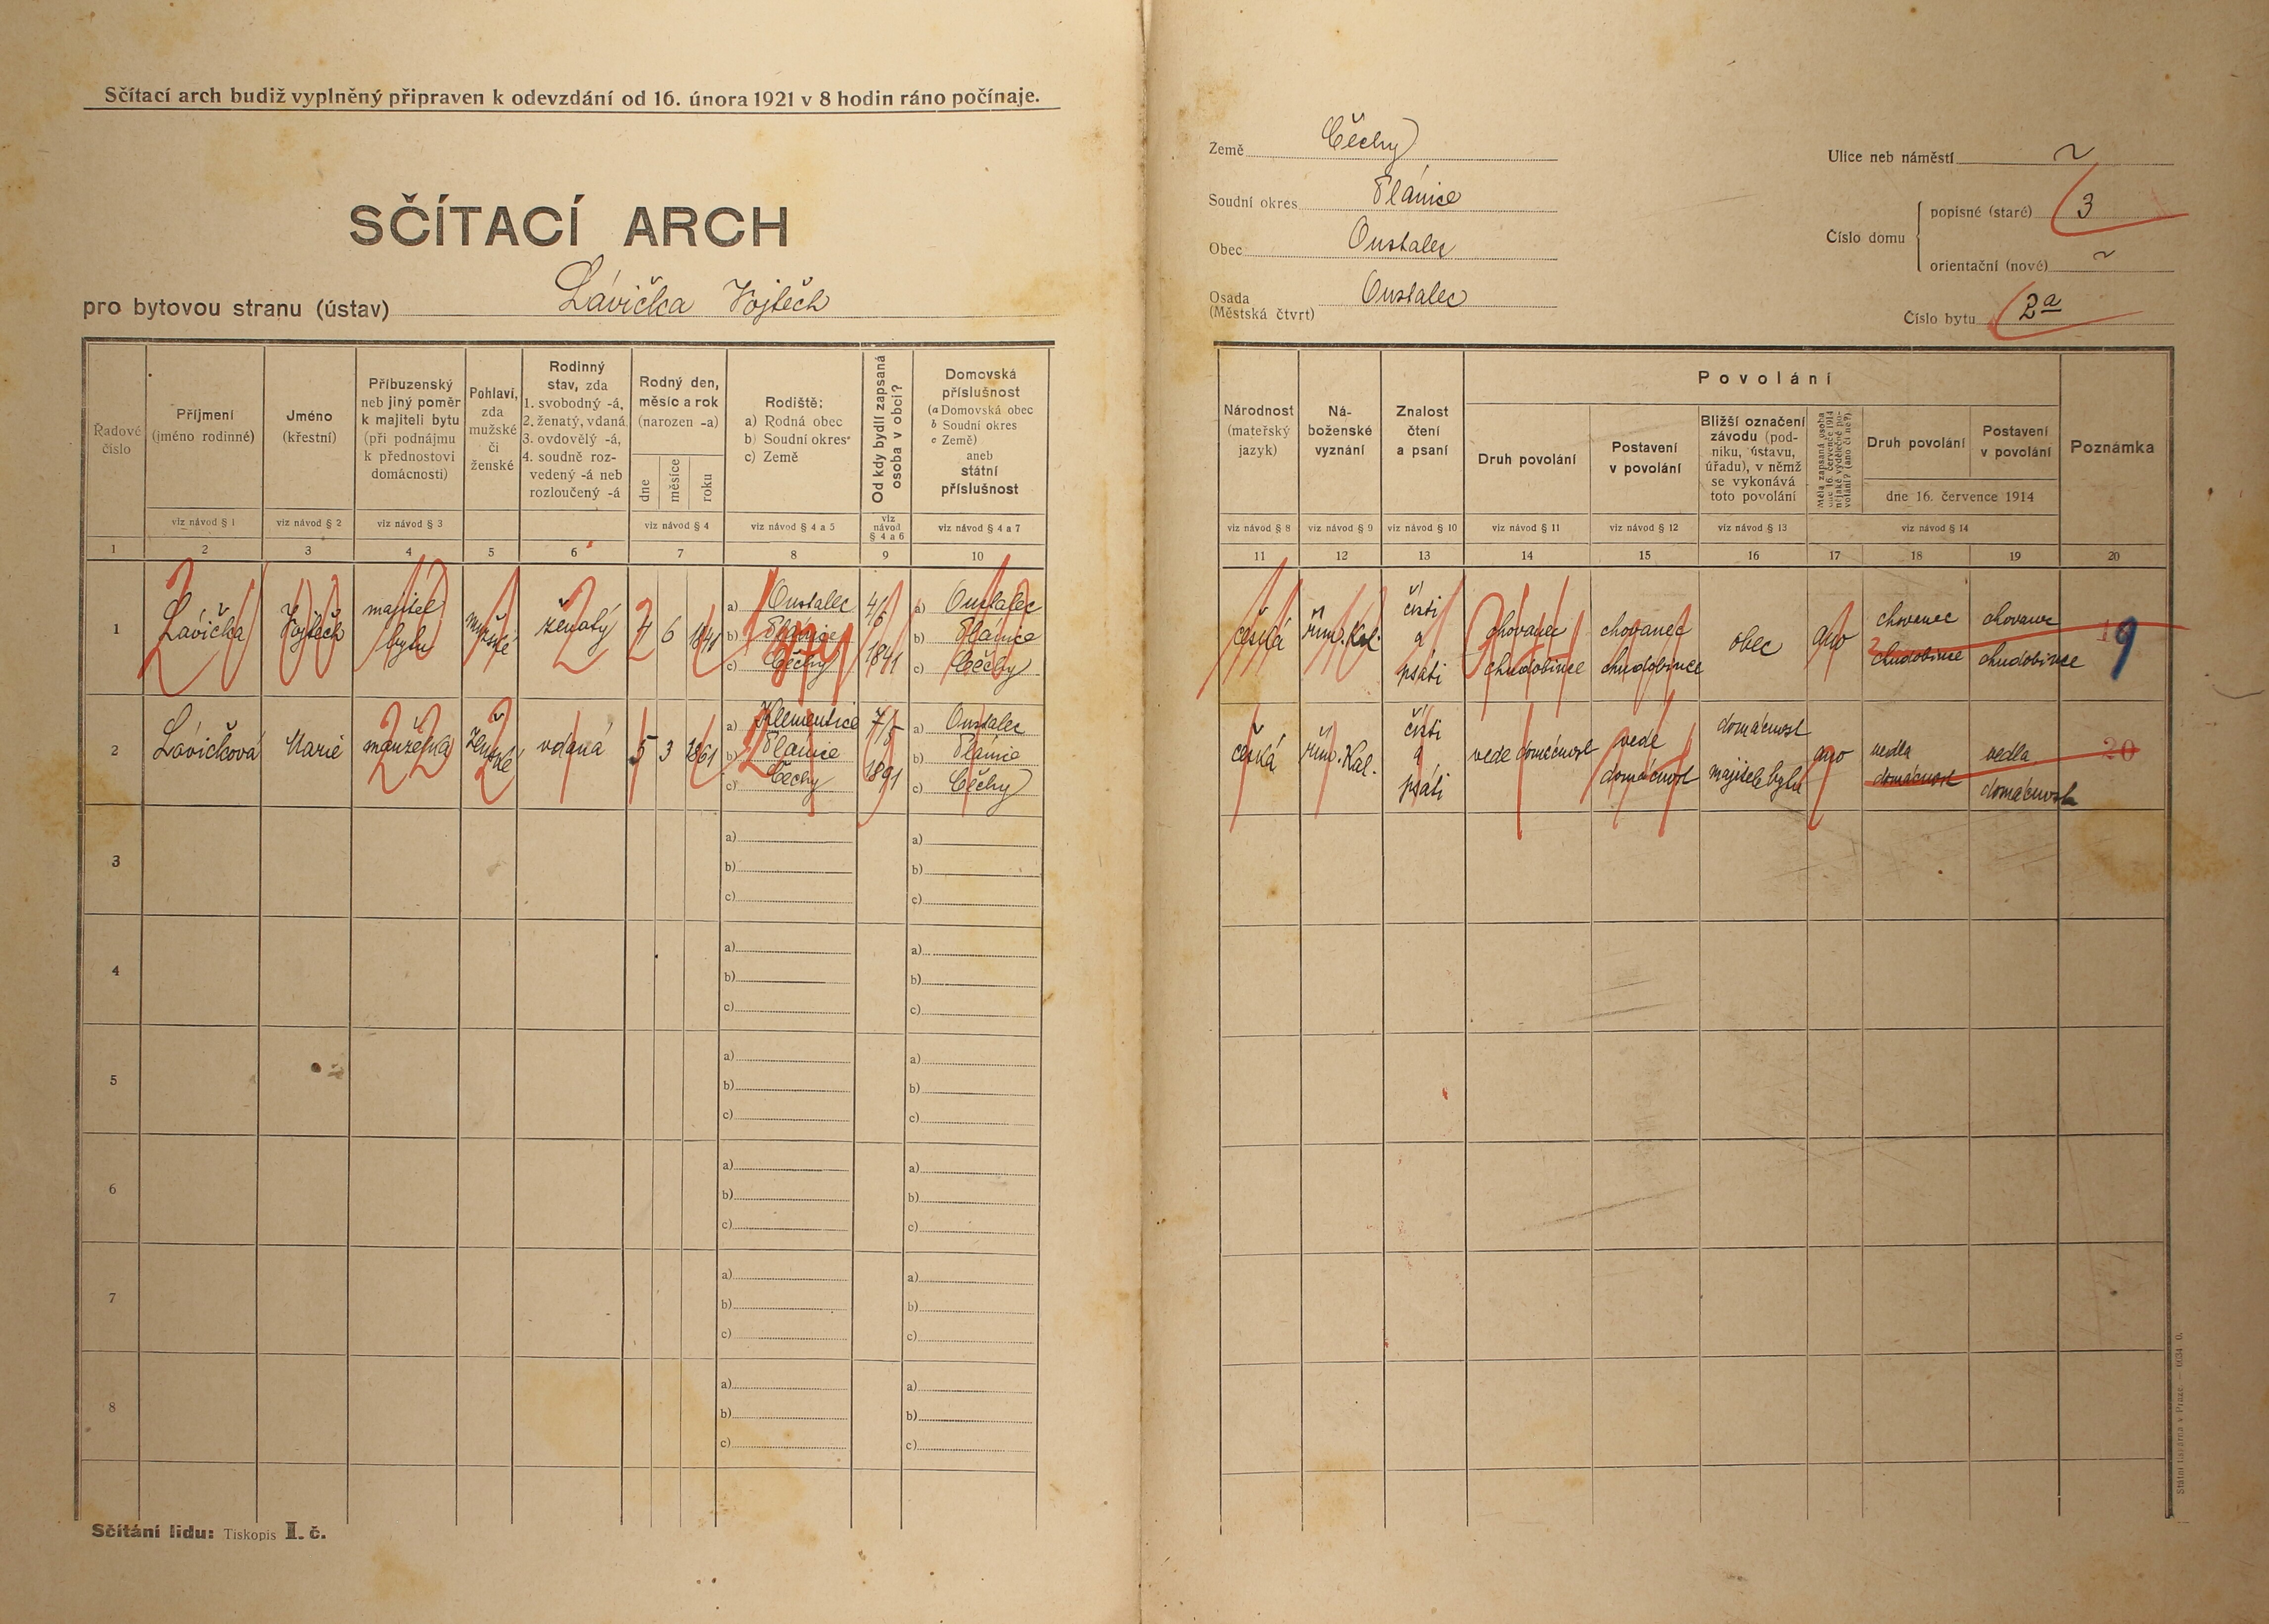 Sčítací arch budiž vyplněný připraven k odevzdání od 16. února 1921 v 8 hodin ráno počínaje.
SČÍTACÍ ARCH
pro bytovou stranu (ústav) Lávička Vojtěch
Země Čechy
Soudní okres Plánice
Obec Oustalec
Osada (Městská čtvrt) Oustalec
Ulice neb náměstí ~
Číslo domu
popisné (staré) 3
orientační (nové) ~
Číslo bytu 2a
Řadové číslo
Příjmení (jméno rodinné)
Jméno (křestní)
Příbuzenský neb jiný poměr k majiteli bytu (při podnájmu k přednostovi domácnosti)
Pohlaví, zda mužské či ženské
Rodinný stav, zda 1. svobodný -á, 2. ženatý, vdaná, 3. ovdovělý -á, 4. soudně rozvedený -á neb rozloučený -á
Rodný den, měsíc a rok (narozen -a)
dne měsíce roku
Rodiště: a) Rodná obec b) Soudní okres c) Země
Od kdy bydlí zapsaná osoba v obci?
Domovská příslušnost (a Domovská obec b Soudní okres c Země) aneb státní příslušnost
viz návod § 1 viz návod § 2 viz návod § 3 viz návod § 4 viz návod § 4 a 5 viz návod § 4 a 6 viz návod § 4 a 7
1 2 3 4 5 6 7 8 9 10
Národnost (mateřský jazyk)
Náboženské vyznání
Znalost čtení a psaní
Povolání
Druh povolání
Postavení v povolání
Bližší označení závodu (podniku, ústavu, úřadu), v němž se vykonává toto povolání
Měla zapsaná osoba dne 16. července 1914 nějaké výdělečné povolání? (ano či ne?)
Druh povolání
Postavení v povolání
dne 16. července 1914
Poznámka
viz návod § 8 viz návod § 9 viz návod § 10 viz návod § 11 viz návod § 12 viz návod § 13 viz návod § 14
11 12 13 14 15 16 17 18 19 20
1 Lávička Vojtěch majitel bytu mužské ženatý 4 6 1841
a) Oustalec
b) Plánice
c) Čechy
4/6 1841
a) Oustalec
b) Plánice
c) Čechy
česká řím. Kat. čísti a psáti chovanec chudobince chovanec chudobince obec ano chovanec chudobince chovanec chudobince 19
2 Lávičková Marie manželka ženské vdaná 5 3 1861
a) Klementice
b) Plánice
c) Čechy
7/5 1891
a) Oustalec
b) Plánice
c) Čechy
česká řím. Kat. čísti a psáti vede domácnost vede domácnost domácnost majitele bytu ano vedla domácnost vedla domácnost 20
3 a) a)
b) b)
c) c)
4 a) a)
b) b)
c) c)
5 a) a)
b) b)
c) c)
6 a) a)
b) b)
c) c)
7 a) a)
b) b)
c) c)
8 a) a)
b) b)
c) c)
Sčítání lidu: Tiskopis I. č.
Státní tiskárna v Praze.